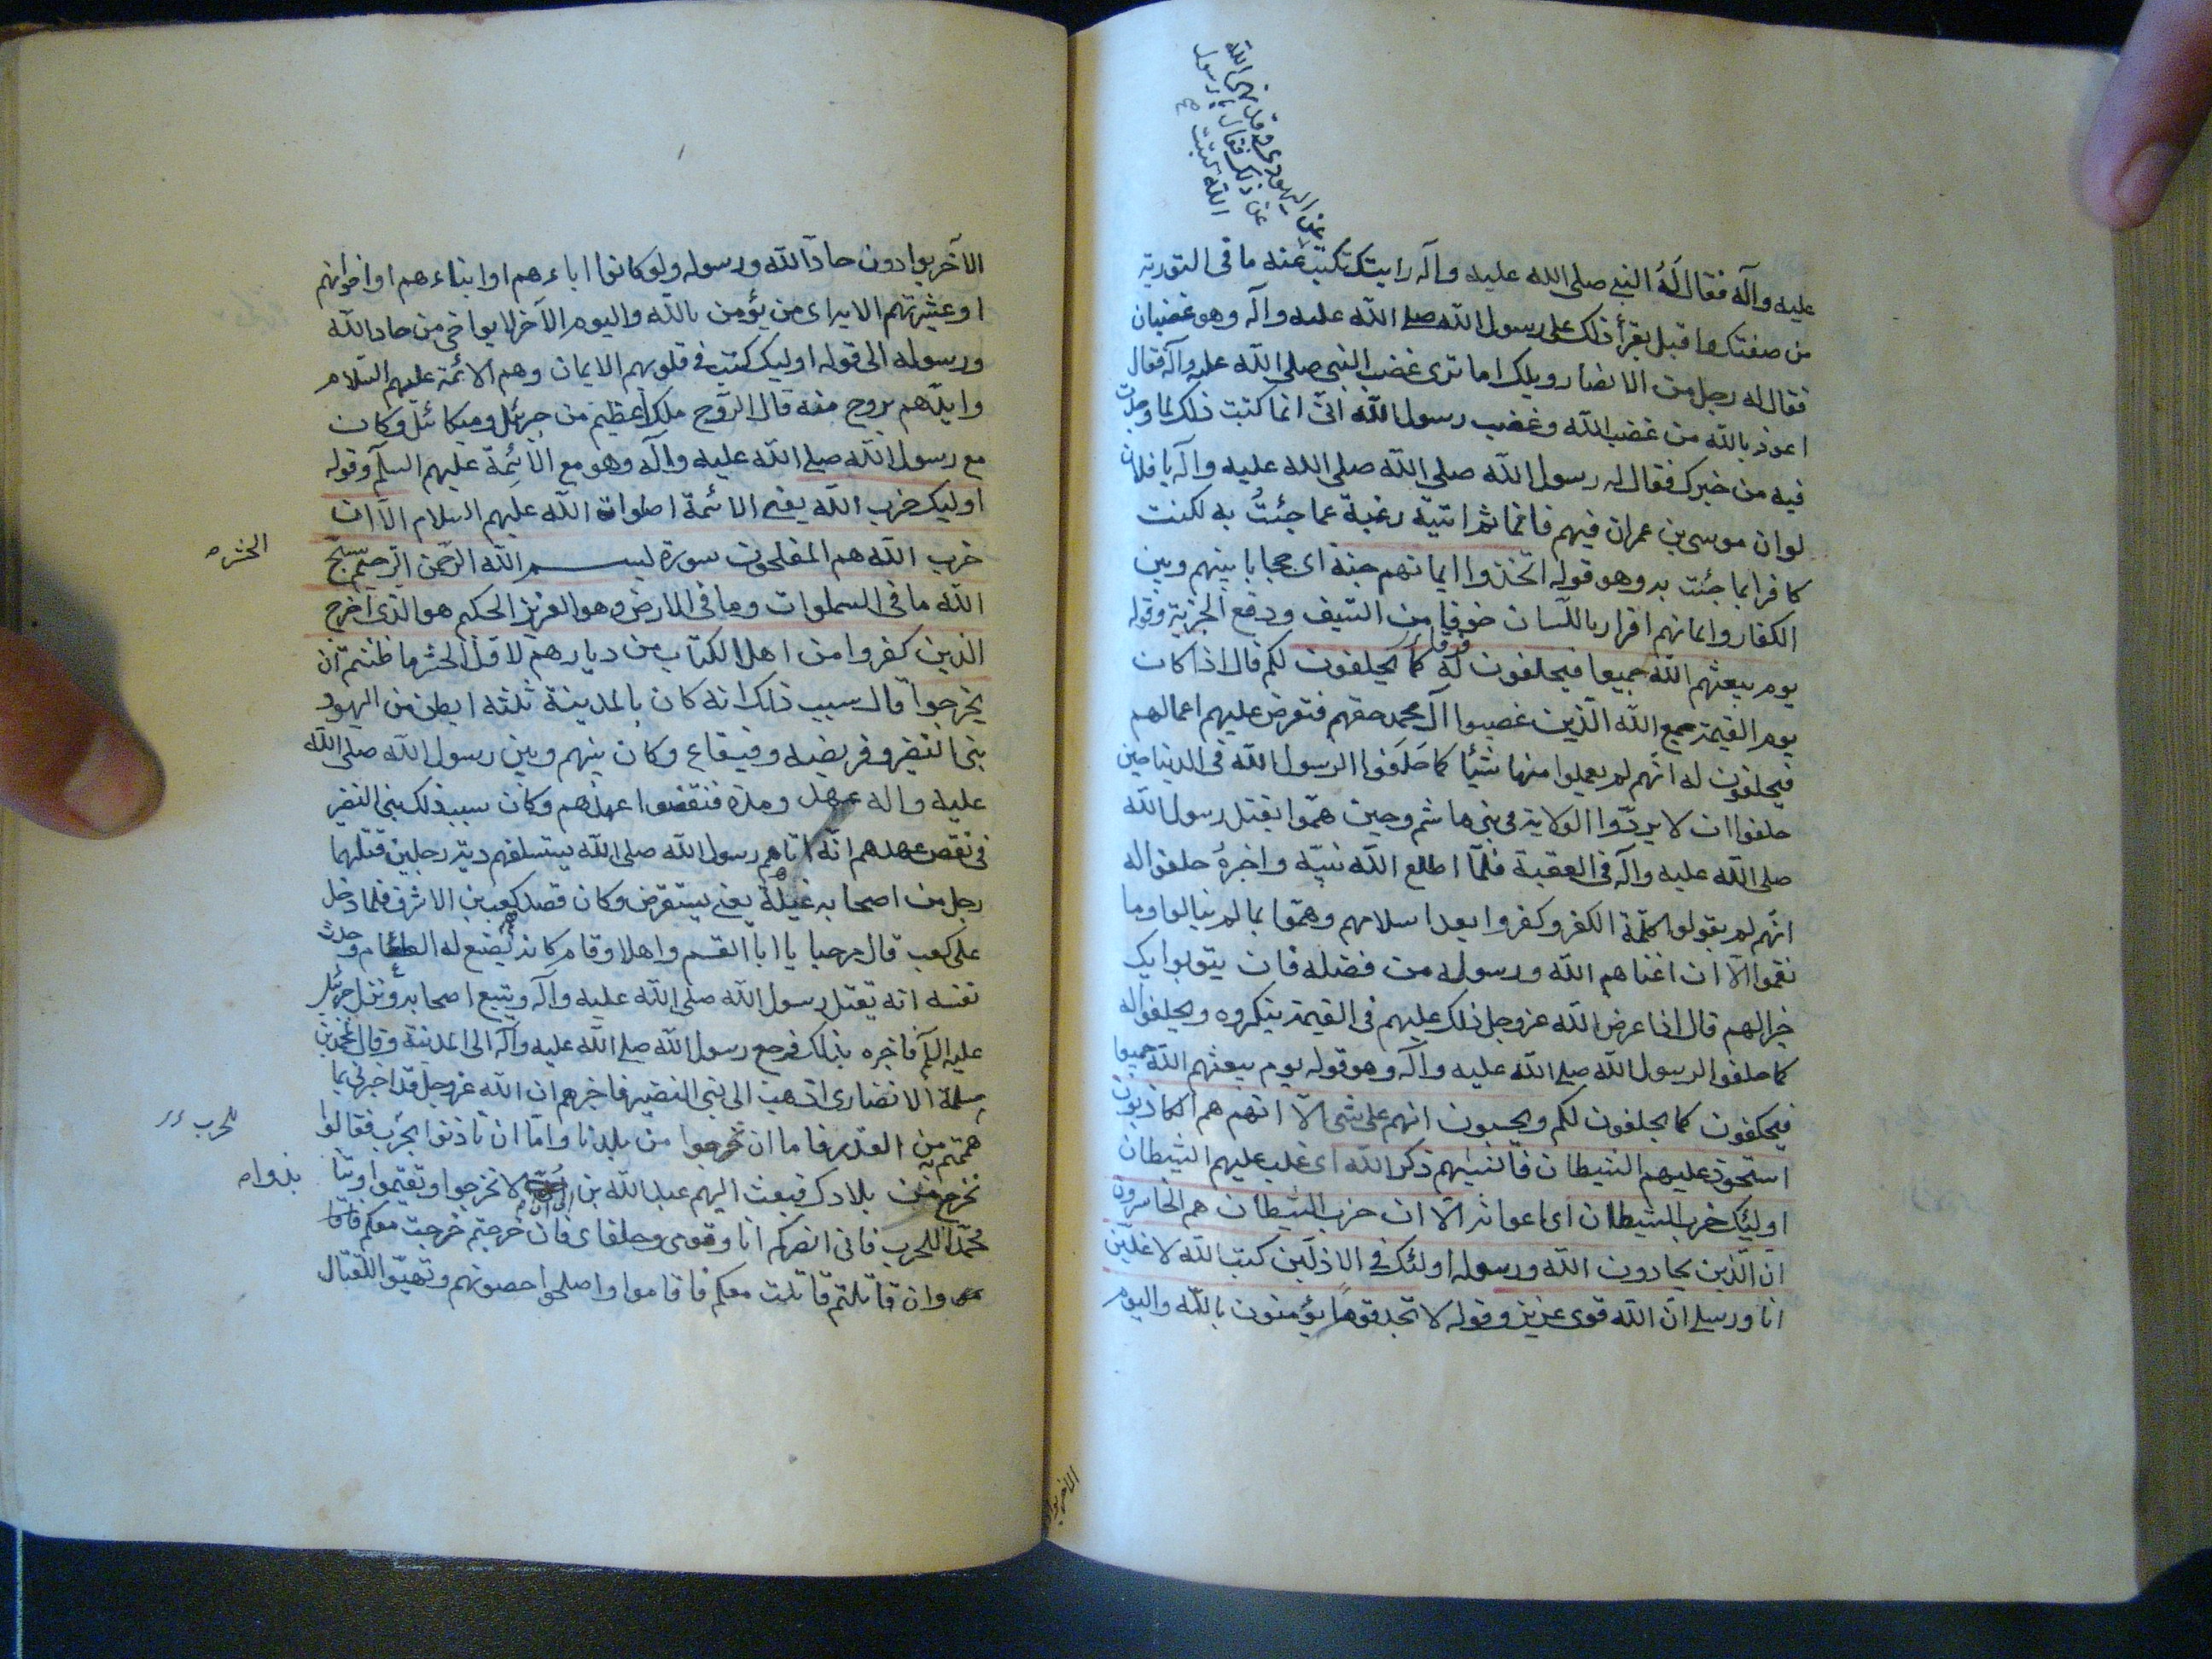 عن اليهودى وقد نهى الله
عن ذلك فقال يا رسول
الله كتبت
عليه وآله فقال له النبى صلى الله عليه وآله رايتك تكتب عنه ما فى التورية
من صفتك فاقبل يقرأ ذلك على رسول الله صلى الله عليه وآله وهو غضبان
فقال له رجل من الانصار ويلك اما ترى غضب النبى صلى الله عليه وآله فقال
اعوذ بالله من غضب الله وغضب رسول الله انى انما كتبت ذلك لما وجدت
فيه من خبرك فقال له رسول الله صلى الله صلى الله عليه وآله يا فلان
لو ان موسى بن عمران فيهم قائما ثم اتيته رغبة عما جئتُ به لكنت
كافرا بما جئت به وهو قوله اتخذوا ايمانهم جنة اى حجابا بينهم وبين
الكفار وايمانهم اقرار باللسان خوفا من السيف ودفع الجزية وقوله
يوم يبعثهم الله جميعا فيحلفون له كما يحلفون لكم قال اذا كان
يوم القيمة جمع الله الذين غصبوا آل محمد حقهم فتعرض عليهم اعمالهم
فيحلفون له انهم لم يعملوا منها شيئا كما حلفوا لرسول الله فى الدنيا حين
حلفوا ان لا يردوا الولاية فى بنى هاشم وحين هموا بقتل رسول الله
صلى الله عليه وآله فى العقبة فلما اطلع الله نبيه واخبره حلفوا له
انهم لم يقولوا كلمة الكفر وكفروا بعد اسلامهم وهموا بما لم ينالوا وما
نقموا الا ان اغناهم الله ورسوله من فضله فان يتوبوا يك
خيرا لهم قال اذا عرض الله عز وجل ذلك عليهم فى القيمة ينكروه ويحلفوا له
كما حلفوا لرسول الله صلى الله عليه وآله وهو قوله يوم يبعثهم الله جميعا
فيحلفون كما يحلفون لكم ويحسبون انهم على شئ الا انهم هم الكاذبون
استحوذ عليهم الشيطان فانسيهم ذكر الله اى غلب عليهم الشيطان
اولئك حزب الشيطان اى اعوانه الا ان حزب الشيطان هم الخاسرون
ان الذين يحادون الله ورسوله اولئك فى الاذلين كتب الله لاغلبن
انا ورسلى ان الله قوى عزيز وقوله لا تجد قوما يؤمنون بالله واليوم
الآخر يوادون
الآخر يوادون حاد الله ورسوله ولو كانوا اباءهم او ابناءهم او اخوانهم
او عشيرتهم الاية اى من يؤمن بالله واليوم الآخر لا يواخى من حاد الله
ورسوله الى قوله اوليك كتب فى قلوبهم الايمان وهم الائمة عليهم السلام
وايدهم بروح منه قال الروح ملك اعظم من جبرئيل وميكائيل وكان
مع رسول الله صلى الله عليه وآله وهو مع الائمة عليهم السلم وقوله
اوليك حزب الله يعنى الائمة اصلوات الله عليهم السلام الا ان
حزب الله هم المفلحون سورة بسم الله الرحمن الرحيم سبح
الحشر
الله ما فى السموات وما فى الارض وهو العزيز الحكيم هو الذى اخرج
الذين كفروا من اهل الكتاب من ديارهم لاول الحشر ما ظننتم ان
يخرجوا قال سبب ذلك انه كان بالمدينة ثلثه ابطن من اليهود
بنى النضير وقريضه وقينقاع وكان بينهم وبين رسول الله صلى الله
عليه واله عهد ومدة فنقضوا عهدهم وكان سبب ذلك بنى النضر
فى نقض عهدهم انه اتاهم رسول الله صلى الله يستسلفهم دية رجلين قتلهما
رجل من اصحابه غيلة يعنى يستقرض وكان قصد كعب بن الاشرف فلما دخل
على كعب قال مرحبا يا ابا القسم واهلا وقام كانه يضع له الطعام وحدث
نفسه انه يقتل رسول الله صلى الله عليه وآله ويتبع اصحابه ونزل جبرئيل
عليه السلم فاخبره بذلك فرجع رسول الله صلى الله عليه وآله الى المدينة وقال لمحمد بن
مسلمة الانصارى اذهب الى بنى النضير فاخبرهم ان الله عز وجل قد اخبرنى بما
هممتم من الغدر فاما ان تخرجوا من بلدنا واما ان تاذنوا بحرب فقالوا
للحرب
نخرج من بلادك فبعث اليهم عبد الله بن ابى ان لا تخرجوا وتقيموا وتنا
بذوا
محمدا للحرب فانى انصركم انا وقومى وحلفاى فان خرجتم خرجت معكم
وان قاتلتم قاتلت معكم فاقاموا واصلحوا حصونهم وتهيئوا للقتال